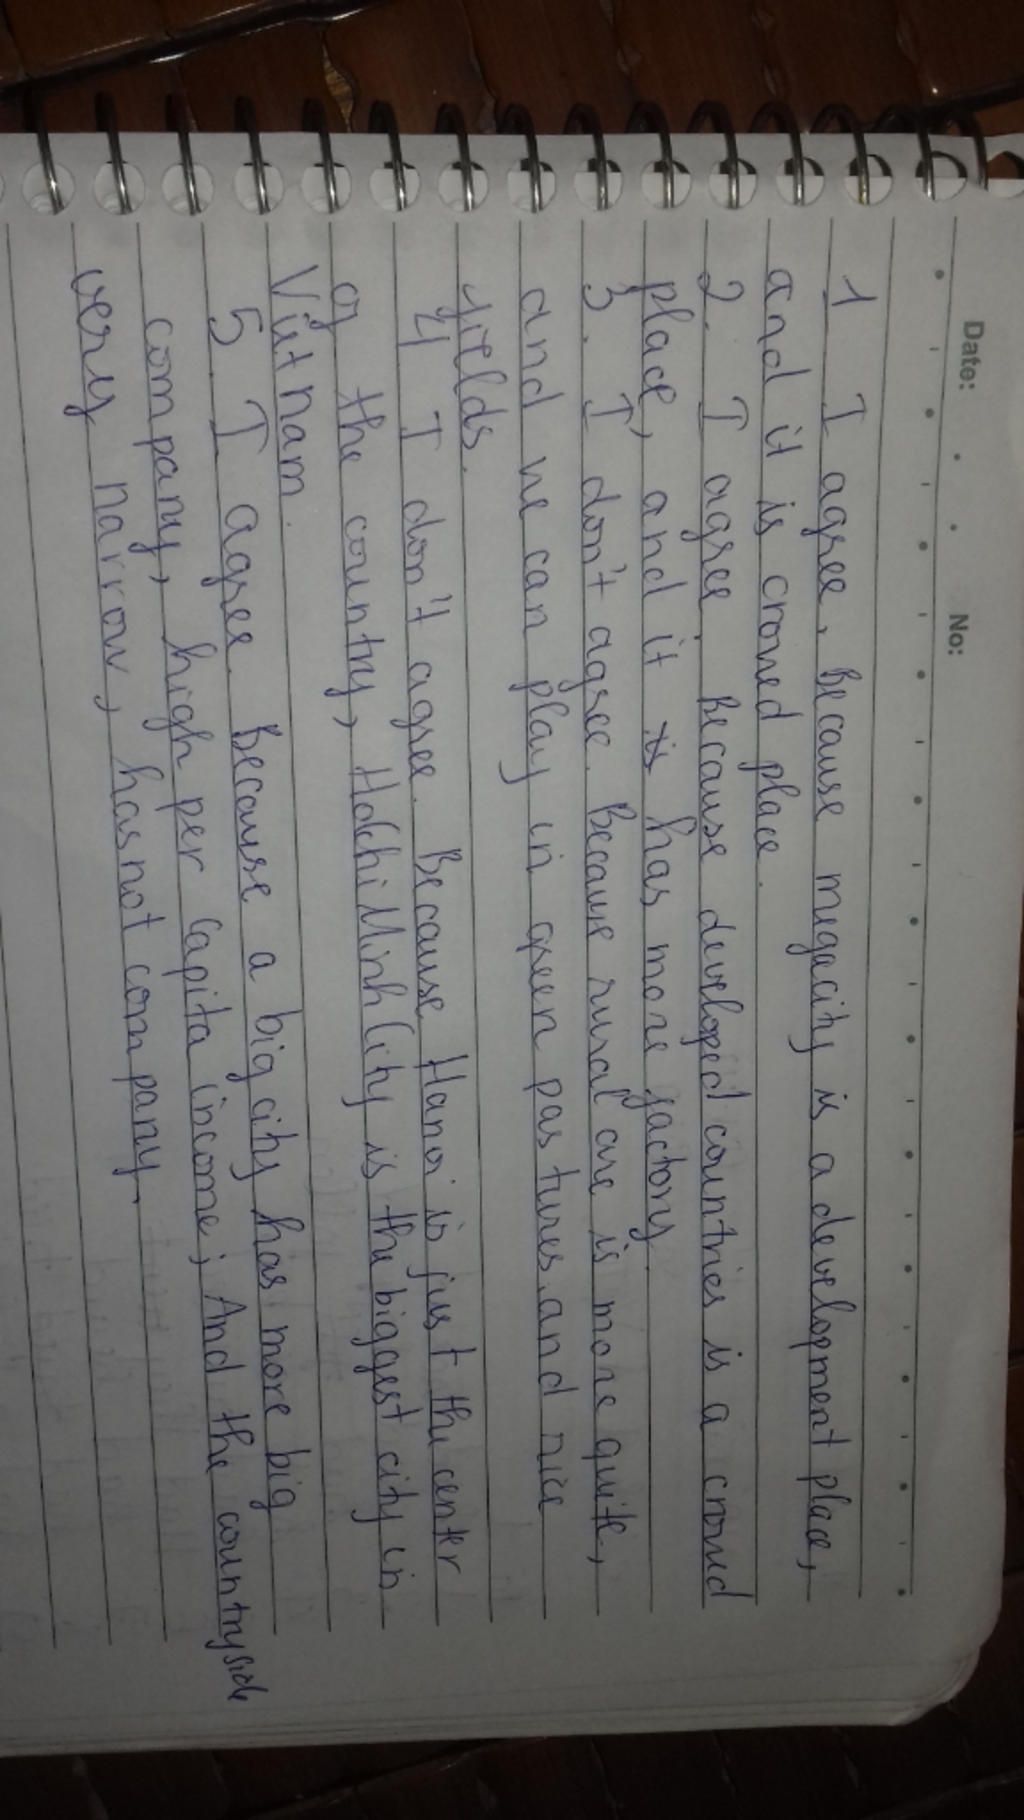 Date: No:
1 I agree. Because megacity is a development place,
and it is crowed place.
2. I agree. Because developed countries is a crowd
place, and it is has more factory.
3. I don't agree. Because rural are is more quite,
and we can play in green pastures, and rice
yields.
4 I don't agree. Because Hanoi is just the center
of the country, Hochi Minh City is the biggest city in
Viet nam.
5 I agree. Because a big city has more big
company, high per capita income; And the countryside
very narrow, has not company.